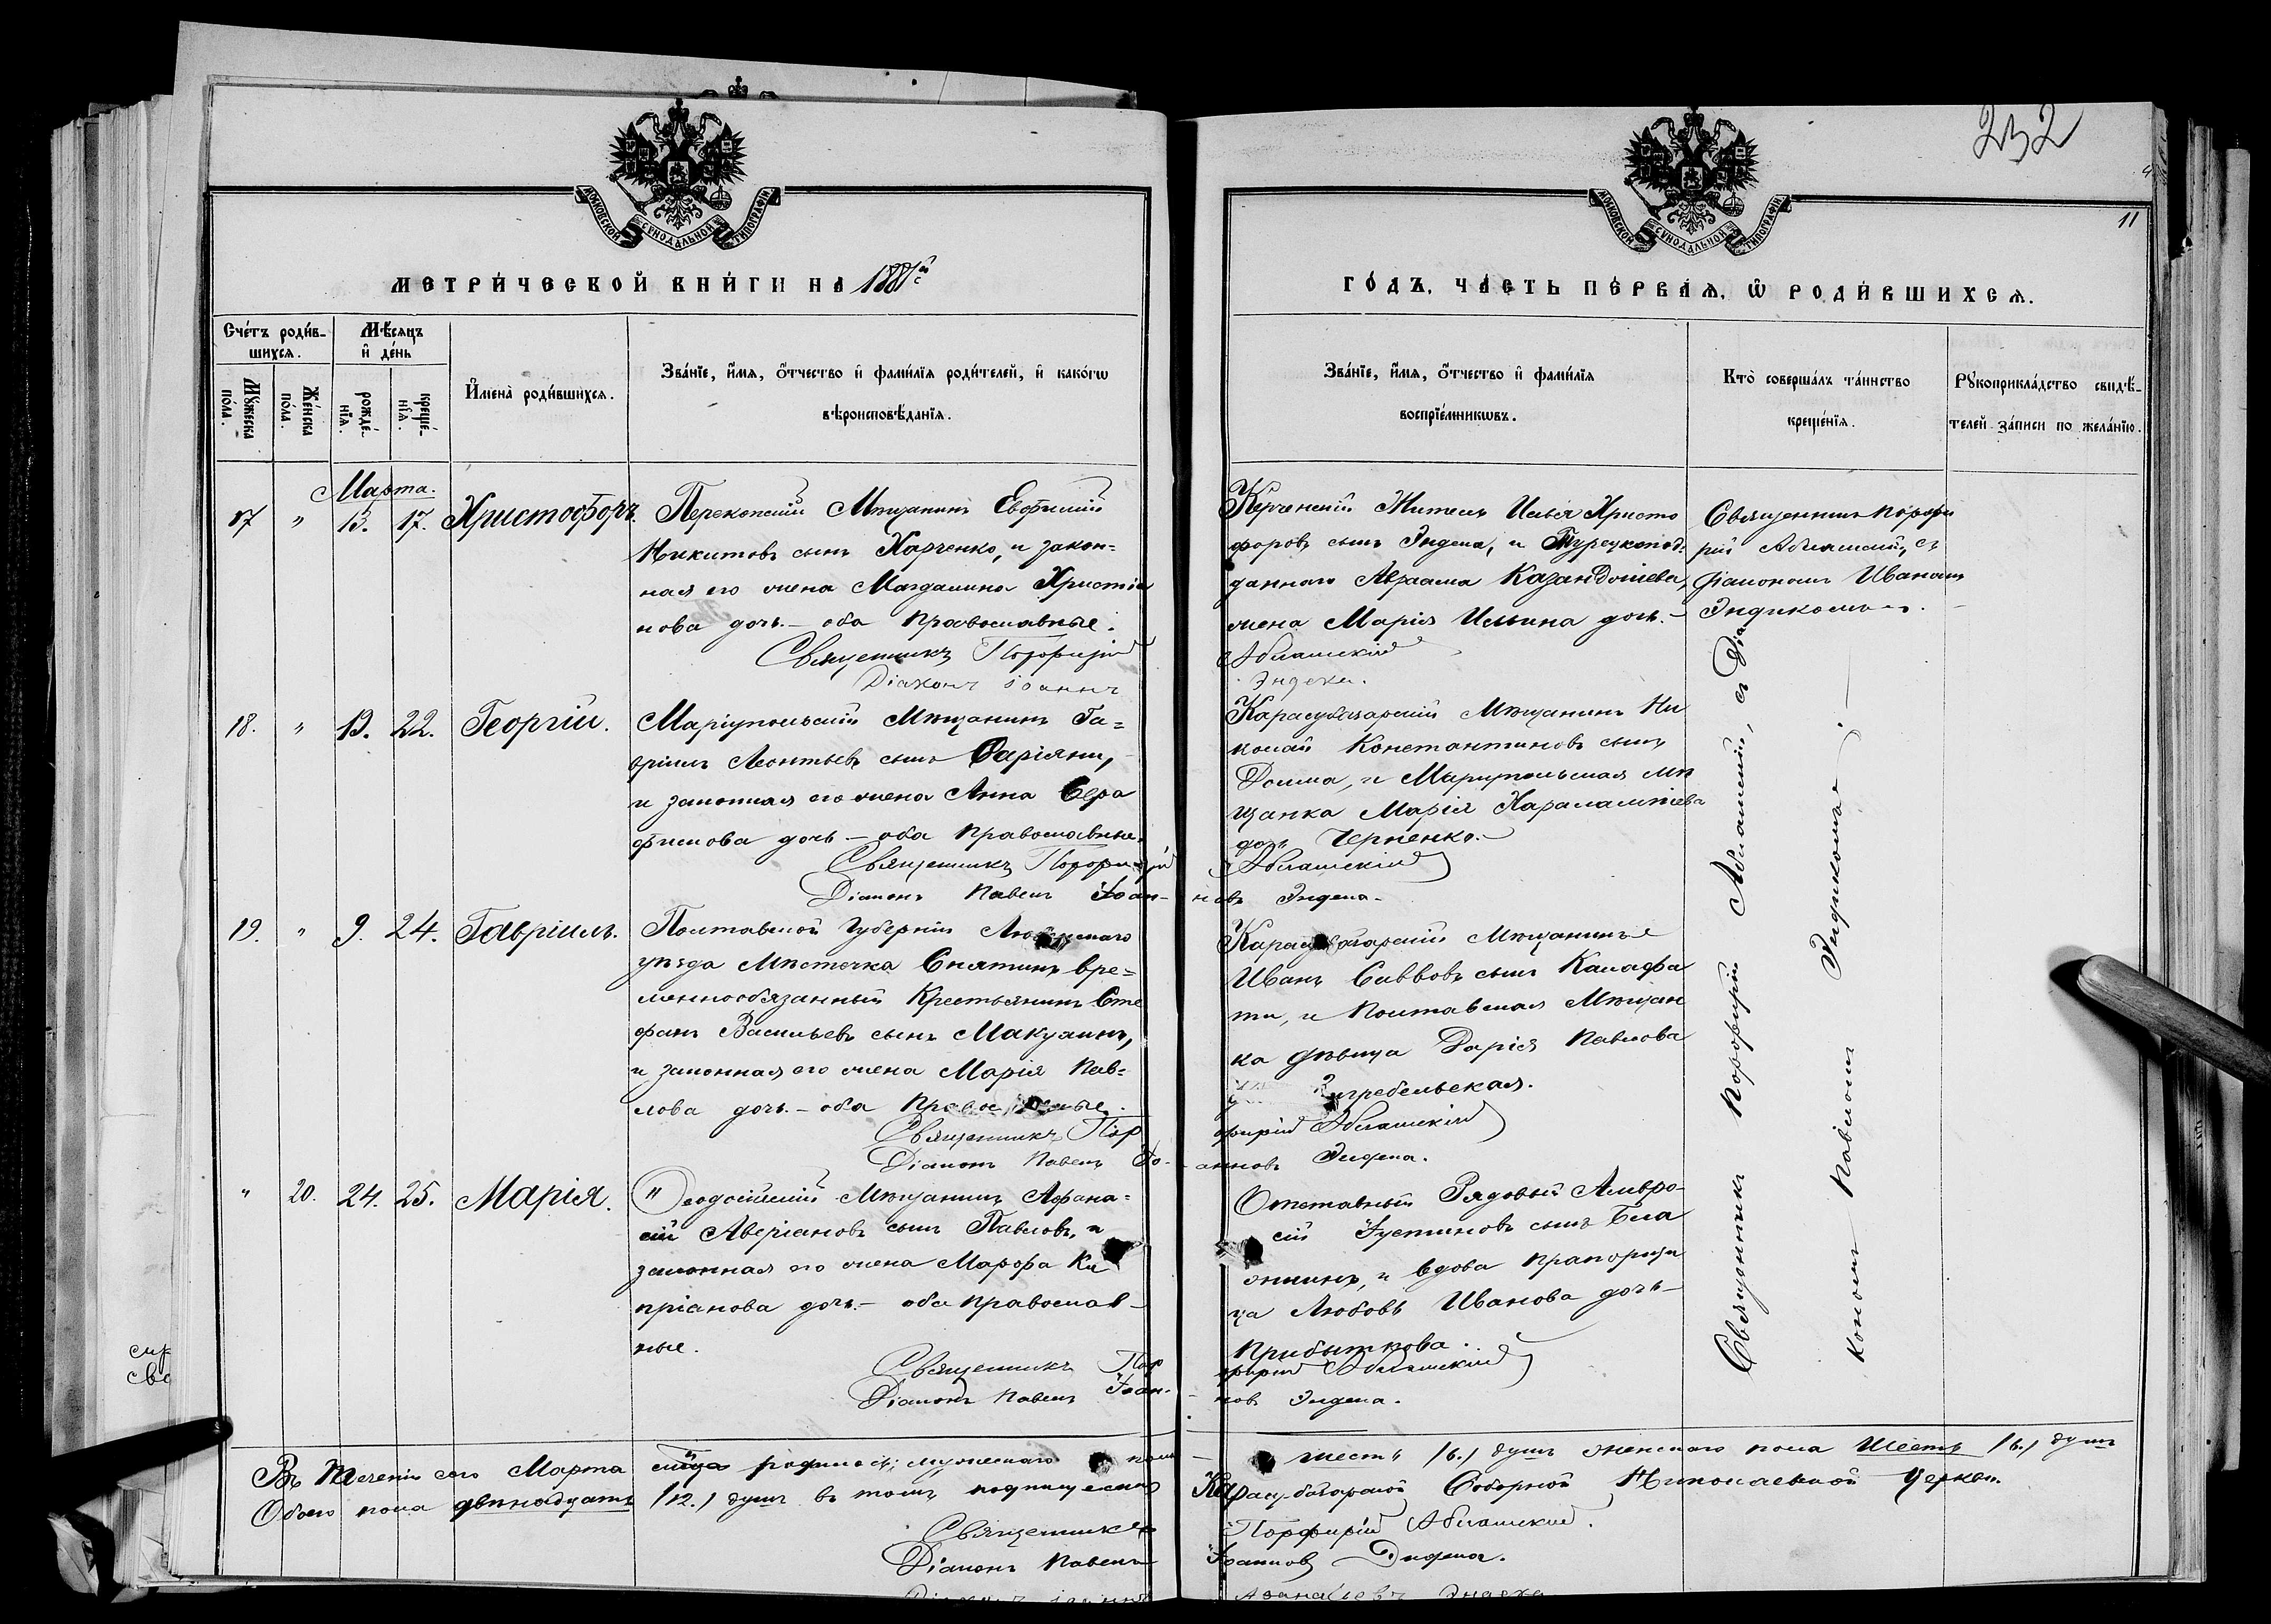 232
11
МОСКОВСКОЙ СѴНОДАЛЬНОЙ ТИПОГРАФІИ
МОСКОВСКОЙ СѴНОДАЛЬНОЙ ТИПОГРАФІИ
МЕТРИ́ЧЕСКОЙ КНИ́ГИ НА 1881й
ГО́ДЪ, ЧА́СТЬ ПЕ́РВАЯ, Ѽ РОДИ́ВШИХСЯ.
Сче́тъ роди́в-
шихся.
Мꙋ́жеска по́ла.
Же́нска по́ла.
Мѣ́сяцъ
и҆ де́нь
рожде́-
нїя.
креще́-
нїя.
И҆мена̀ роди́вшихся.
Зва́нїе, и҆́мя, ѻ҆́тчество и҆ фами́лїя роди́телей, и҆ како́гѡ
вѣроисповѣ́данїя.
Зва́нїе, и҆́мя, ѻ҆́тчество и҆ фами́лїя
воспрїе́мникѡвъ.
Кто̀ соверша́лъ та́инство
креще́нїя.
Рꙋкоприкла́дство свидѣ́-
телей за́писи по жела́нїю.
Марта.
17 " 13. 17. Христофоръ.
Перекопскій Мѣщанинъ Евфимій
Никитовъ сынъ Харченко, и закон-
ная его жена Магдалина Христіа
нова дочь. – оба Православные.
Священникъ Порфирій
Діаконъ Іоаннъ
Керченскій Житель Илья Христо
форовъ сынъ Эндека, и Турецкопод-
даннаго Авраама Казанджіева,
жена Марія Ильина дочь. –
Аблашскій
Эндека.
Священникъ Порфи
рій Аблашскій, съ
Діакономъ Иваномъ
Эндикомъ.
18. " 13. 22. Георгій.
Маріупольскій Мѣщанинъ Га=
вріилъ Леонтьевъ сынъ
и законная его жена Анна Сера
фимова дочь – оба православные.
Священникъ Порфирій
Діаконъ Павелъ Іоан-
Карасубазарскій Мѣщанинъ Ни
колай Константиновъ сынъ
и Маріупольская мѣ
щанка Марія Харалампіева
дочь Черненко. –
Аблашскій
новъ Эндека.
19. " 9. 24. Гавріилъ.
Полтавской Губерніи
уѣзда Мѣстечка Снятинъ вре=
меннообязанный Крестьянинъ Сте
фанъ Васильевъ сынъ Макухинъ,
и законная его жена Марія Пав=
лова дочь. – оба Православные.
Священникъ Пор
Діаконъ Павелъ Іо-
Карасубазарскій Мѣщанинъ
Иванъ Саввовъ сынъ Калафа
ти, и Полтавская Мѣщан
ка дѣвица Дарія Павлова
Загребельская.
фирій Аблашскій
анновъ Эндека.
" 20. 24. 25. Марія.
Ѳеодосійскій Мѣщанинъ Афана=
сій Аверіановъ сынъ Павловъ, и
законная его жена Марфа Ки
пріанова дочь. – оба православ-
ные.
Священникъ Пор
Діаконъ Павелъ Іоан-
Отставный Рядовый Амвро-
сій Іустиновъ сынъ
и вдова Прапорщи
ца Любовь Иванова дочь –
Прибыткова.
фирій Аблашскій
новъ Эндека.
Священникъ Порфирій Аблашскій, съ Діа
кономъ Павломъ Эндикомъ.
Въ теченіи сего Марта мѣсяца родилось; мужескаго пола – шесть /6./ душъ женскаго пола шесть /6./ душъ
Обоего пола двѣнадцать /12./ душъ въ томъ подписуемся Карасубазарской Соборной Николаевской Церкви.
Священникъ Порфирій Аблашскій.
Діаконъ Павелъ Іоанновъ Эндека.